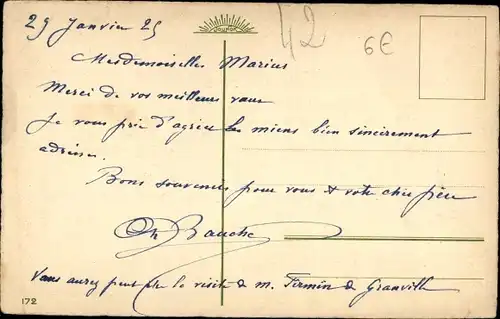 29 Janvier 25
42
6€
Mesdemoiselles Marius
Merci de vos meilleurs vœux
Je vous prie d'agréer les miens bien sincèrement
adressés.
Bons souvenirs pour vous & votre cher frère
Ch Bauche
Vous aurez peut être la visite de M. Firmin de Granville
172